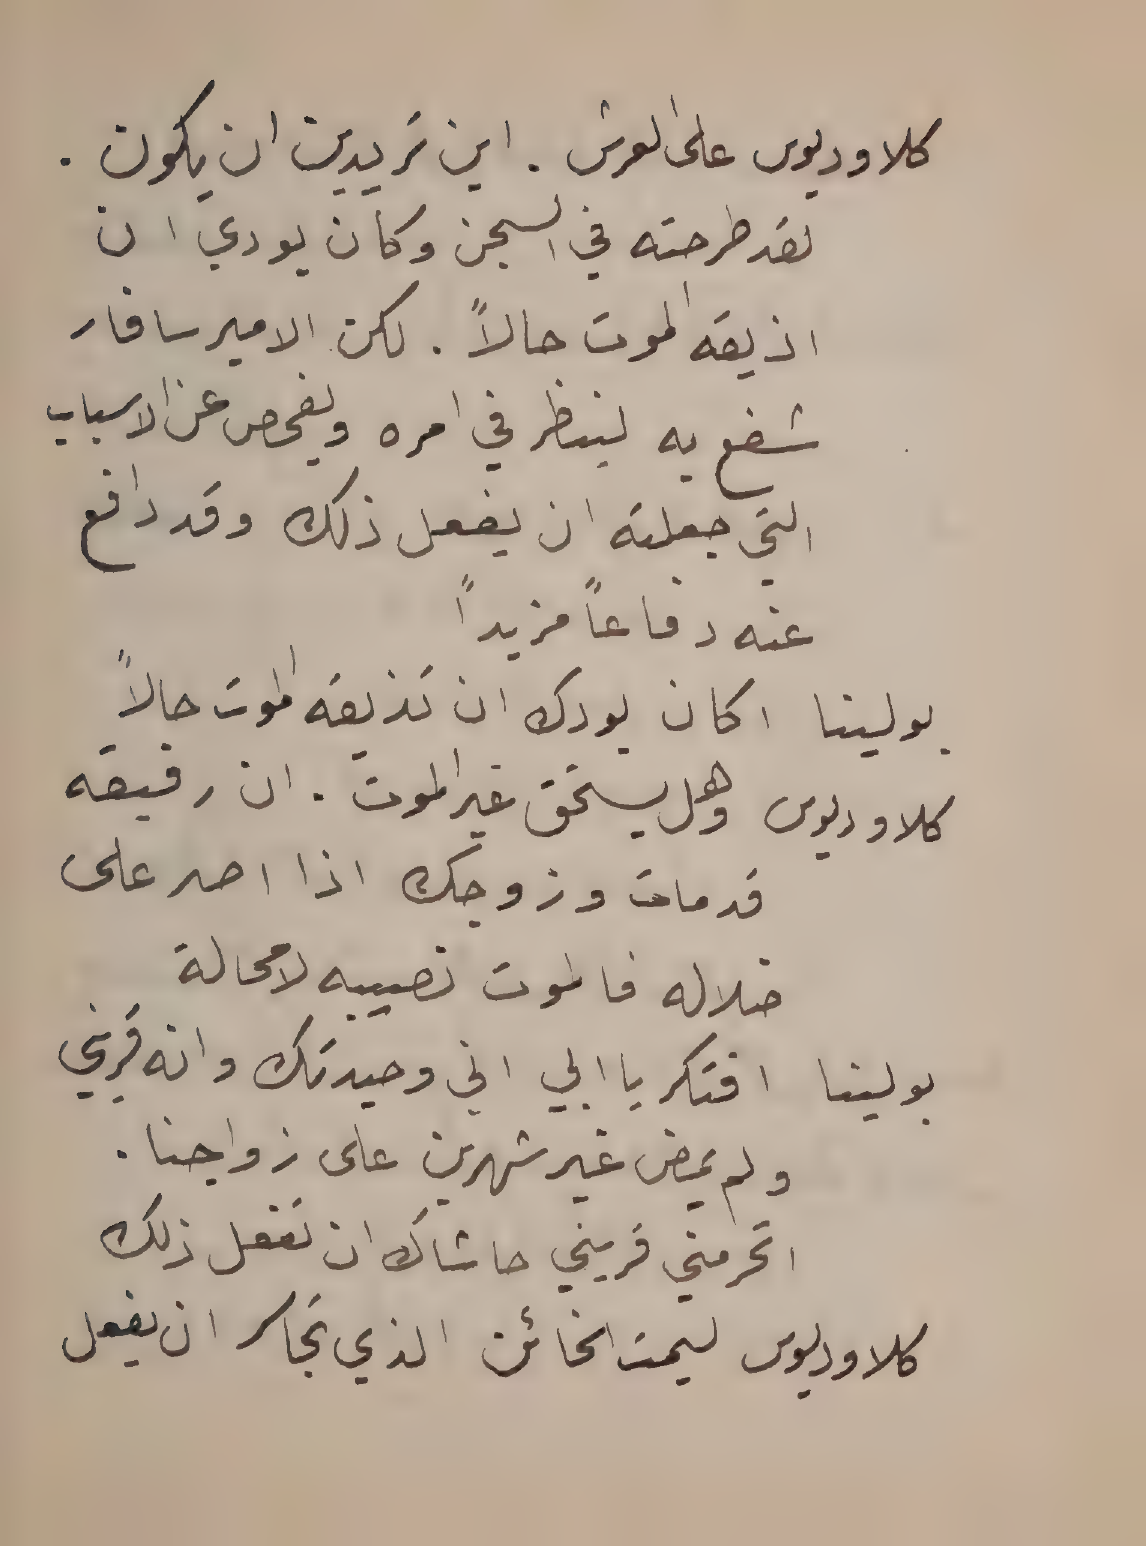 كلاوديوس على العرش . اين تريدين ان يكون .
لقد طرحته في السجن وكان بودي ان
اذيقه الموت حالاً . لكن الامير سافار
شفع به لينظر في امره ويفحص عن الاسباب
التي جعلته ان يفعل ذلك وقد دافع
عنه دفاعاً مزيداً
بولينا اكان بودك ان تذيقه الموت حالاً
كلاوديوس وهل يستحق غير الموت . ان رفيقه
قد مات وزوجك اذا اصر على
ضلاله فالموت نصيبه لامحالة
بولينا افتكر يا ابي اني وحيدتك وانه قريني
ولم يمض غير شهرين على زواجنا .
اتحرمني قريني حاشاك ان تفعل ذلك
كلاوديوس ليمت الخائن الذي تجاسر ان يفعل